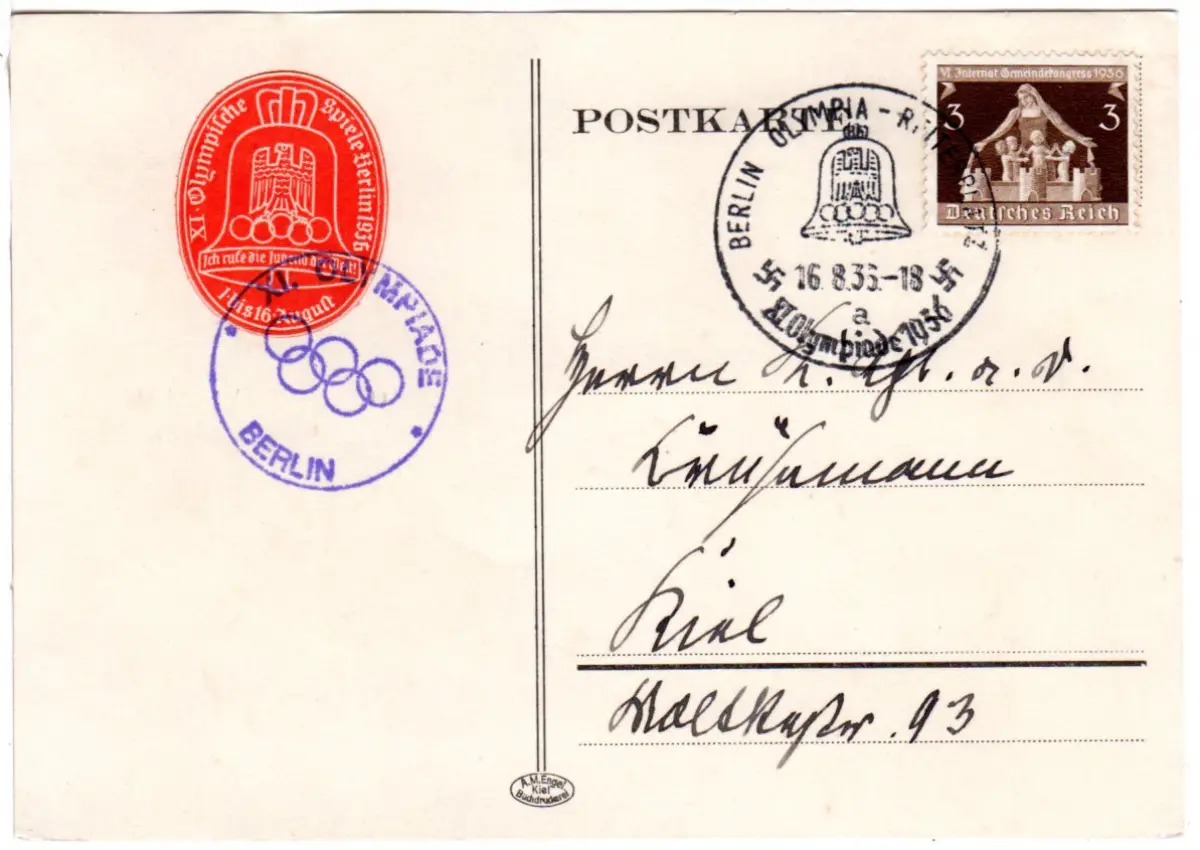 XI. Olympische Spiele Berlin 1936
Ich rufe die Jugend der Welt!
1. bis 16. August
XI. OLYMPIADE
BERLIN
POSTKARTE
BERLIN OLYMPIA-REITERPLATZ
16.8.36.-18
a
XI. Olympiade 1936
VI. Internat. Gemeindekongress 1936
3 3
Deutsches Reich
Herrn
Kiel
Moltkestr. 93
A.M. Engel
Kiel
Buchdruckerei